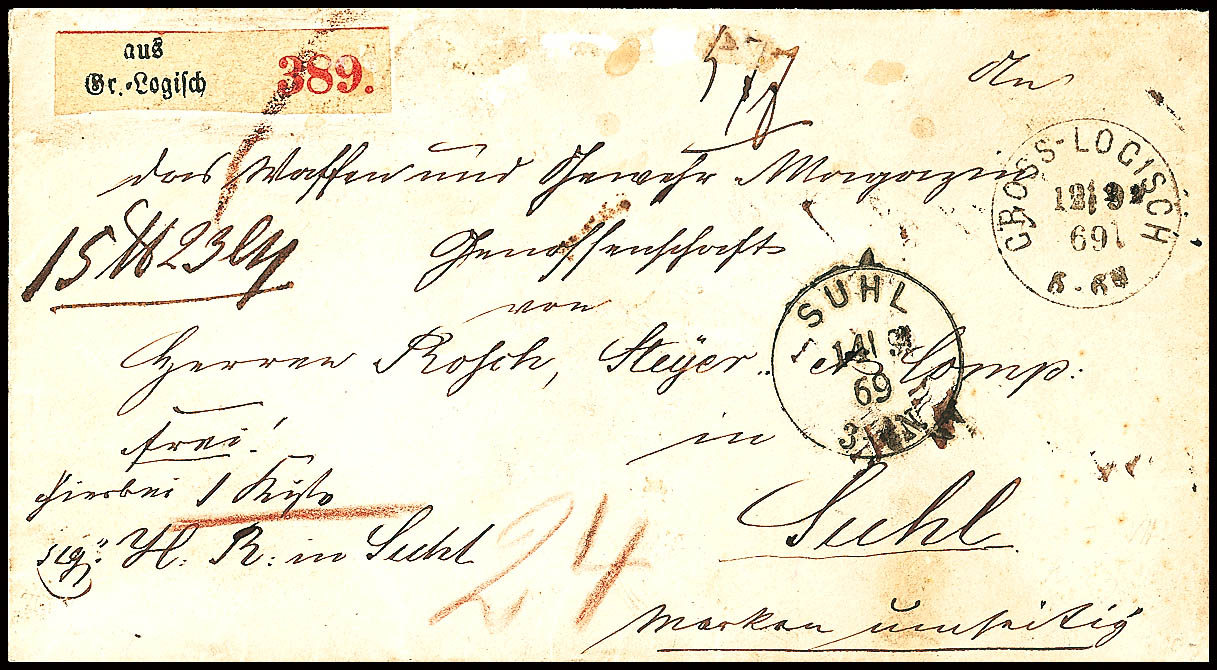 aus
Gr.-Logisch
389.
An
das Waffen und Gewehr Magazin
Genossenschaft
von
Herren Rosch, Steyer & Comp:
in
Suhl
frei!
Hierbei 1 Kiste
sig: H. R: in Suhl
15 ℔ 23
24
Marken umseitig
GROSS-LOGISCH
12 9
69
6-
SUHL
14 9
69
3